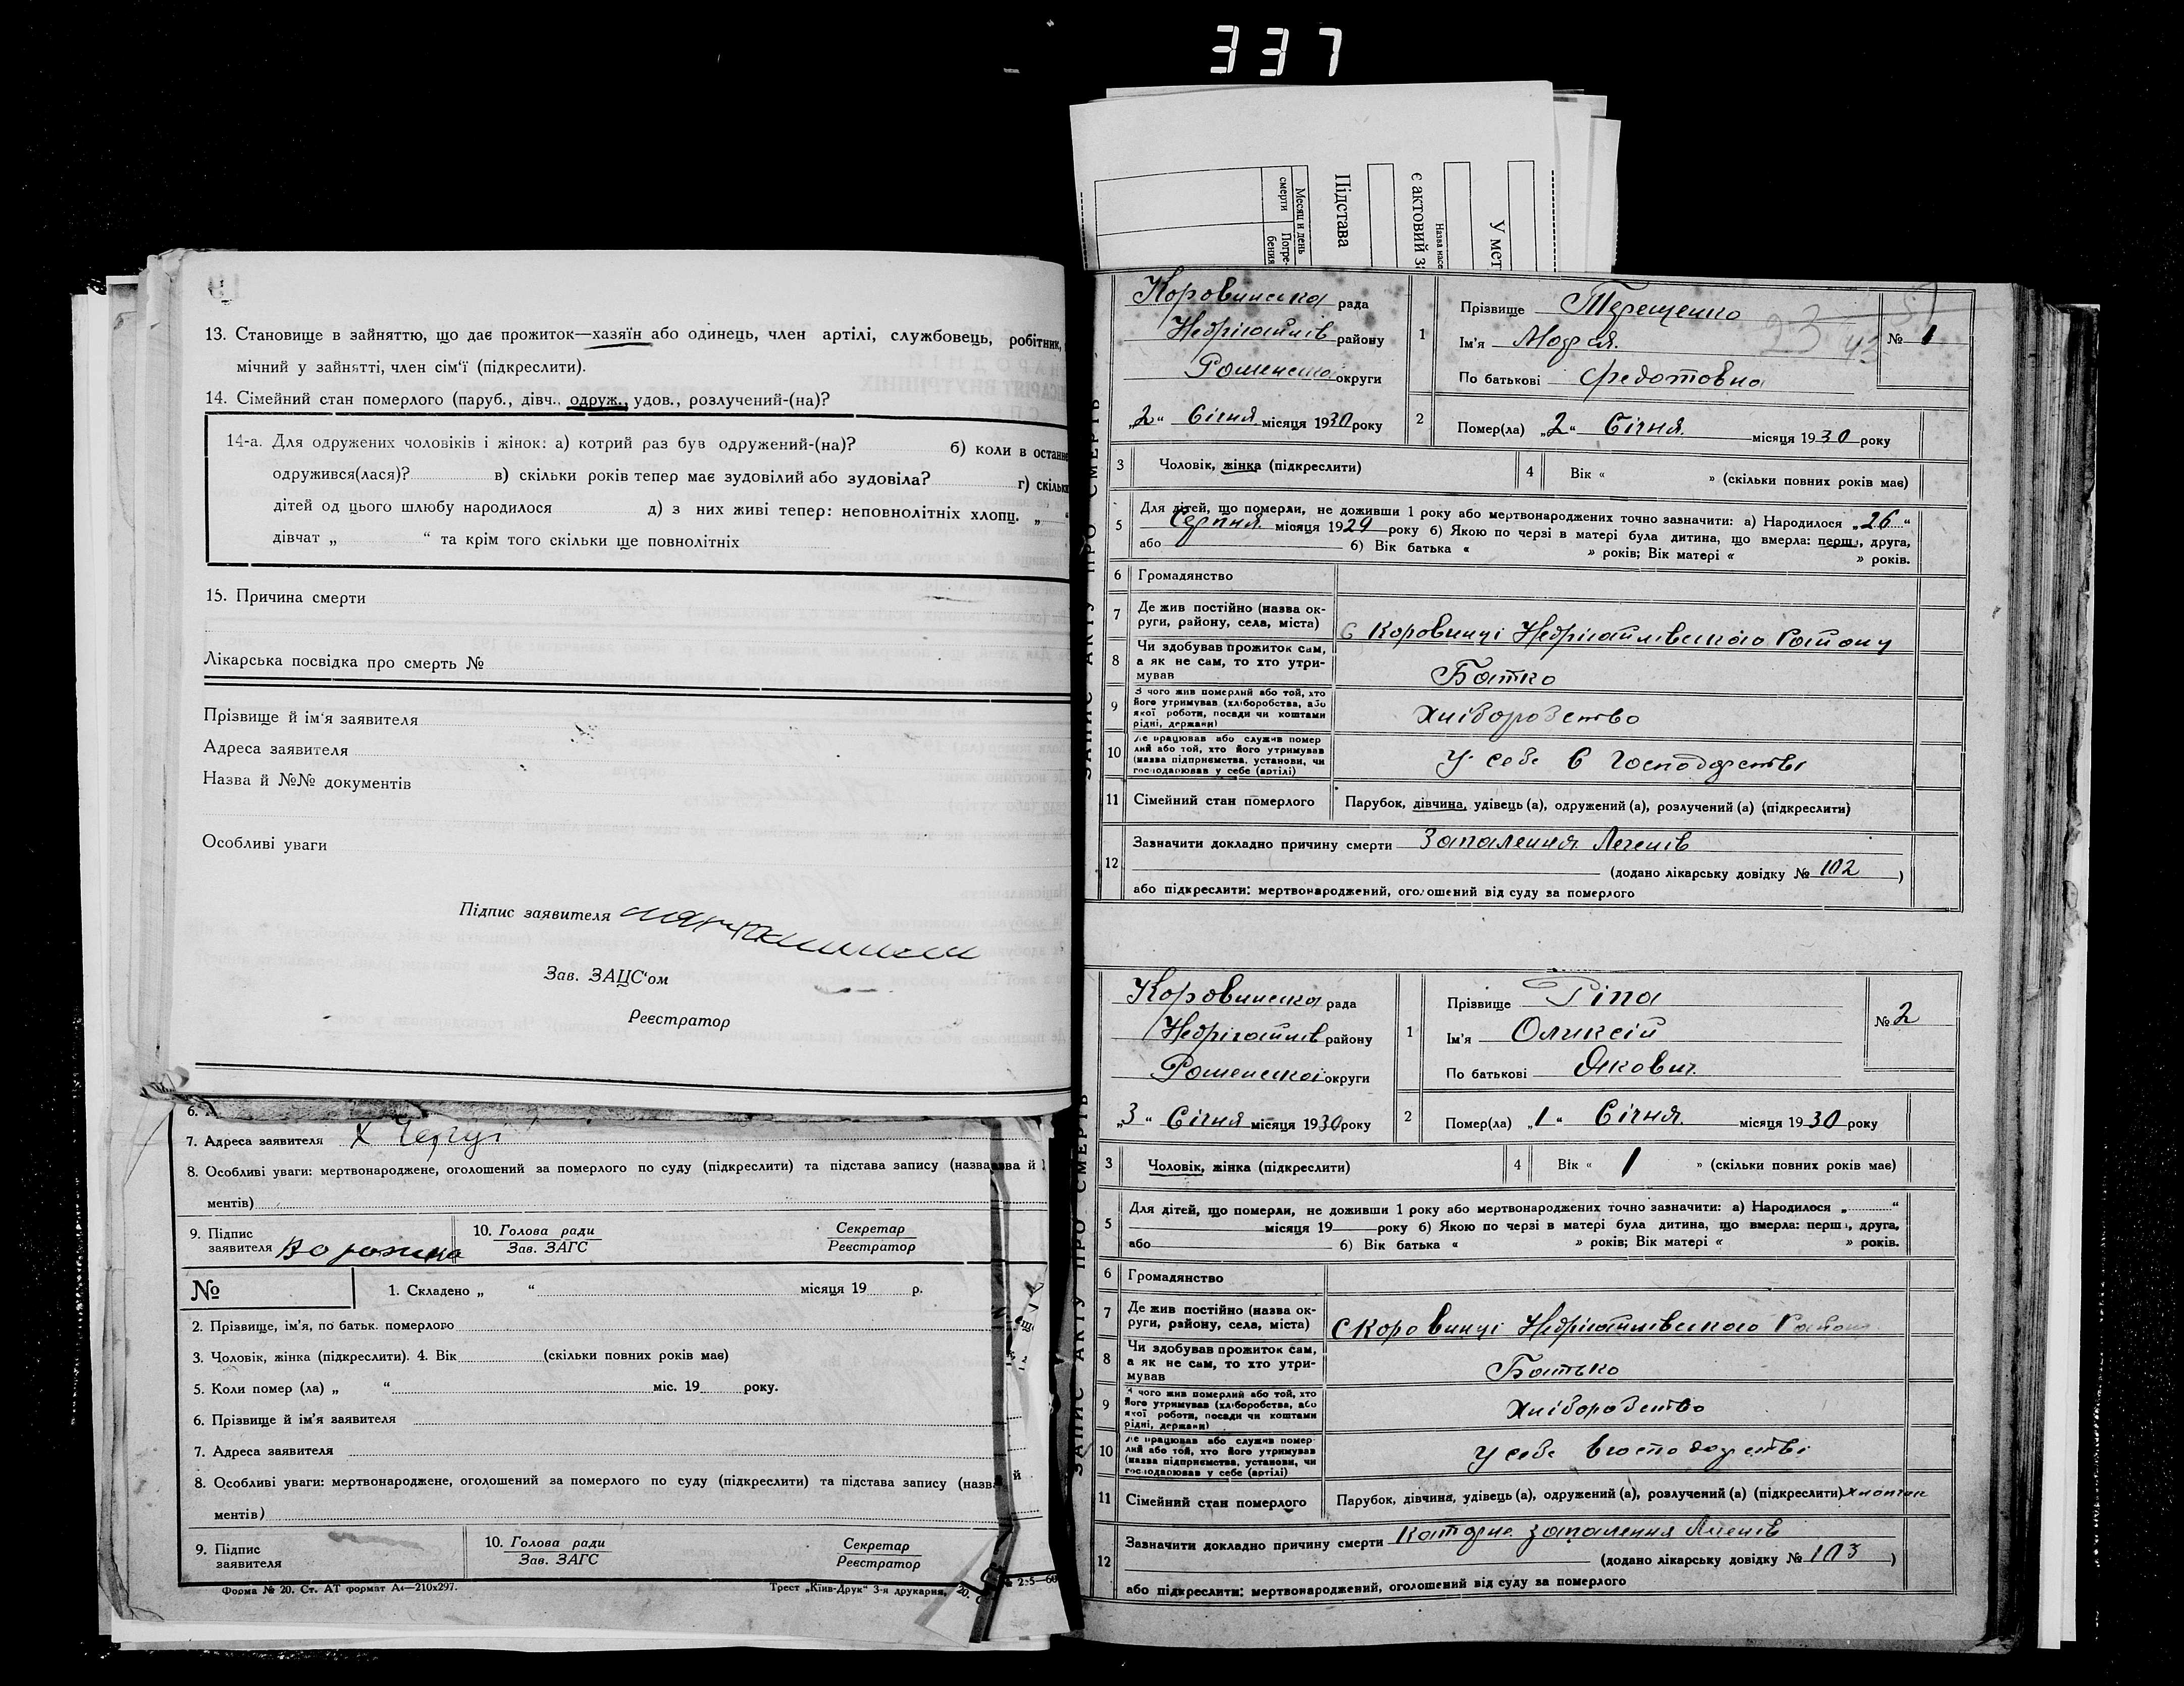 337
Підстава
є актовий за
У мет
Назва насе
Месяц и день
смерти
Погре-
бения
13. Становище в зайняттю, що дає прожиток—хазяїн або одинець, член артілі, службовець, робітник,
мічний у зайнятті, член сім‘ї (підкреслити).
14. Сімейний стан померлого (паруб., дівч., одруж., удов., розлучений-(на)?
14-а. Для одружених чоловіків і жінок: а) котрий раз був одружений-(на)? б) коли в останнє
одружився(лася)? в) скільки років тепер має зудовілий або зудовіла? г) скільки
дітей од цього шлюбу народилося д) з них живі тепер: неповнолітніх хлопц. „ “
дівчат „ “ та крім того скільки ще повнолітніх
15. Причина смерти
Лікарська посвідка про смерть №
Прізвище й ім‘я заявителя
Адреса заявителя
Назва й №№ документів
Особливі уваги
Підпис заявителя
Зав. ЗАЦС‘ом
Реєстратор
7. Адреса заявителя
8. Особливі уваги: мертвонароджене, оголошений за померлого по суду (підкреслити) та підстава запису (назва й
ментів)
9. Підпис
заявителя
10. Голова ради
Зав. ЗАГС
Секретар
Реєстратор
№ 1. Складено „ “ місяця 19 р.
2. Прізвище, ім’я, по батьк. померлого
3. Чоловік, жінка (підкреслити). 4. Вік (скільки повних років має)
5. Коли помер (ла) „ “ міс. 19 року.
6. Прізвище й ім’я заявителя
7. Адреса заявителя
8. Особливі уваги: мертвонароджене, оголошений за померлого по суду (підкреслити) та підстава запису (назва й
ментів)
9. Підпис
заявителя
10. Голова ради
Зав. ЗАГС
Секретар
Реєстратор
Форма № 20. Ст. АТ формат А4—210х297. Трест „Київ-Друк“ 3-я друкарня.
ЗАПИС АКТУ ПРО СМЕРТЬ
Коровинська рада
Недрігайлів району
Роменської округи
„2“ Січня місяця 1930 року
1 Прізвище Терещенко
Ім’я Мотря
По батькові Федотовна
№ 1
2 Помер(ла) „2“ Січня місяця 1930 року
3 Чоловік, жінка (підкреслити) 4 Вік « » (скільки повних років має)
5 Для дітей, що померли, не доживши 1 року або мертвонароджених точно зазначити: а) Народилося „26“
Серпня місяця 1929 року б) Якою по черзі в матері була дитина, що вмерла: перша, друга,
або б) Вік батька « » років; Вік матері « » років.
6 Громадянство
7 Де жив постійно (назва ок-
руги, району, села, міста) С Коровинці Недрігайлівського Району
8 Чи здобував прожиток сам,
а як не сам, то хто утри-
мував Батко
9 З чого жив померлий або той, хто
його утримував (хліборобства, або
якої роботи, посади чи коштами
рідні, держави) Хліборобство
10 Де працював або служив помер
лий або той, хто його утримував
(назва підприємства, установи, чи
господарював у себе (артілі) У себе в господарстві
11 Сімейний стан померлого Парубок, дівчина, удівець (а), одружений (а), розлучений (а) (підкреслити)
12 Зазначити докладно причину смерти Запалення Легенів
(додано лікарську довідку № 102)
або підкреслити: мертвонароджений, оголошений від суду за померлого
ЗАПИС АКТУ ПРО СМЕРТЬ
Коровинська рада
Недрігайлів району
Роменської округи
„3“ Січня місяця 1930 року
1 Прізвище Ріпа
Ім’я Оликсій
По батькові Якович
№ 2
2 Помер(ла) „1“ Січня місяця 1930 року
3 Чоловік, жінка (підкреслити) 4 Вік « 1 » (скільки повних років має)
5 Для дітей, що померли, не доживши 1 року або мертвонароджених точно зазначити: а) Народилося „ “
місяця 19 року б) Якою по черзі в матері була дитина, що вмерла: перша, друга,
або б) Вік батька « » років; Вік матері « » років.
6 Громадянство
7 Де жив постійно (назва ок-
руги, району, села, міста) С Коровинці Недрігайлівського Району
8 Чи здобував прожиток сам,
а як не сам, то хто утри-
мував Батько
9 З чого жив померлий або той, хто
його утримував (хліборобства, або
якої роботи, посади чи коштами
рідні, держави) Хліборобство
10 Де працював або служив помер
лий або той, хто його утримував
(назва підприємства, установи, чи
господарював у себе (артілі) У себе в господарстві
11 Сімейний стан померлого Парубок, дівчина, удівець (а), одружений (а), розлучений (а) (підкреслити) хлопчик
12 Зазначити докладно причину смерти Катарне запалення Легенів
(додано лікарську довідку № 103)
або підкреслити: мертвонароджений, оголошений від суду за померлого